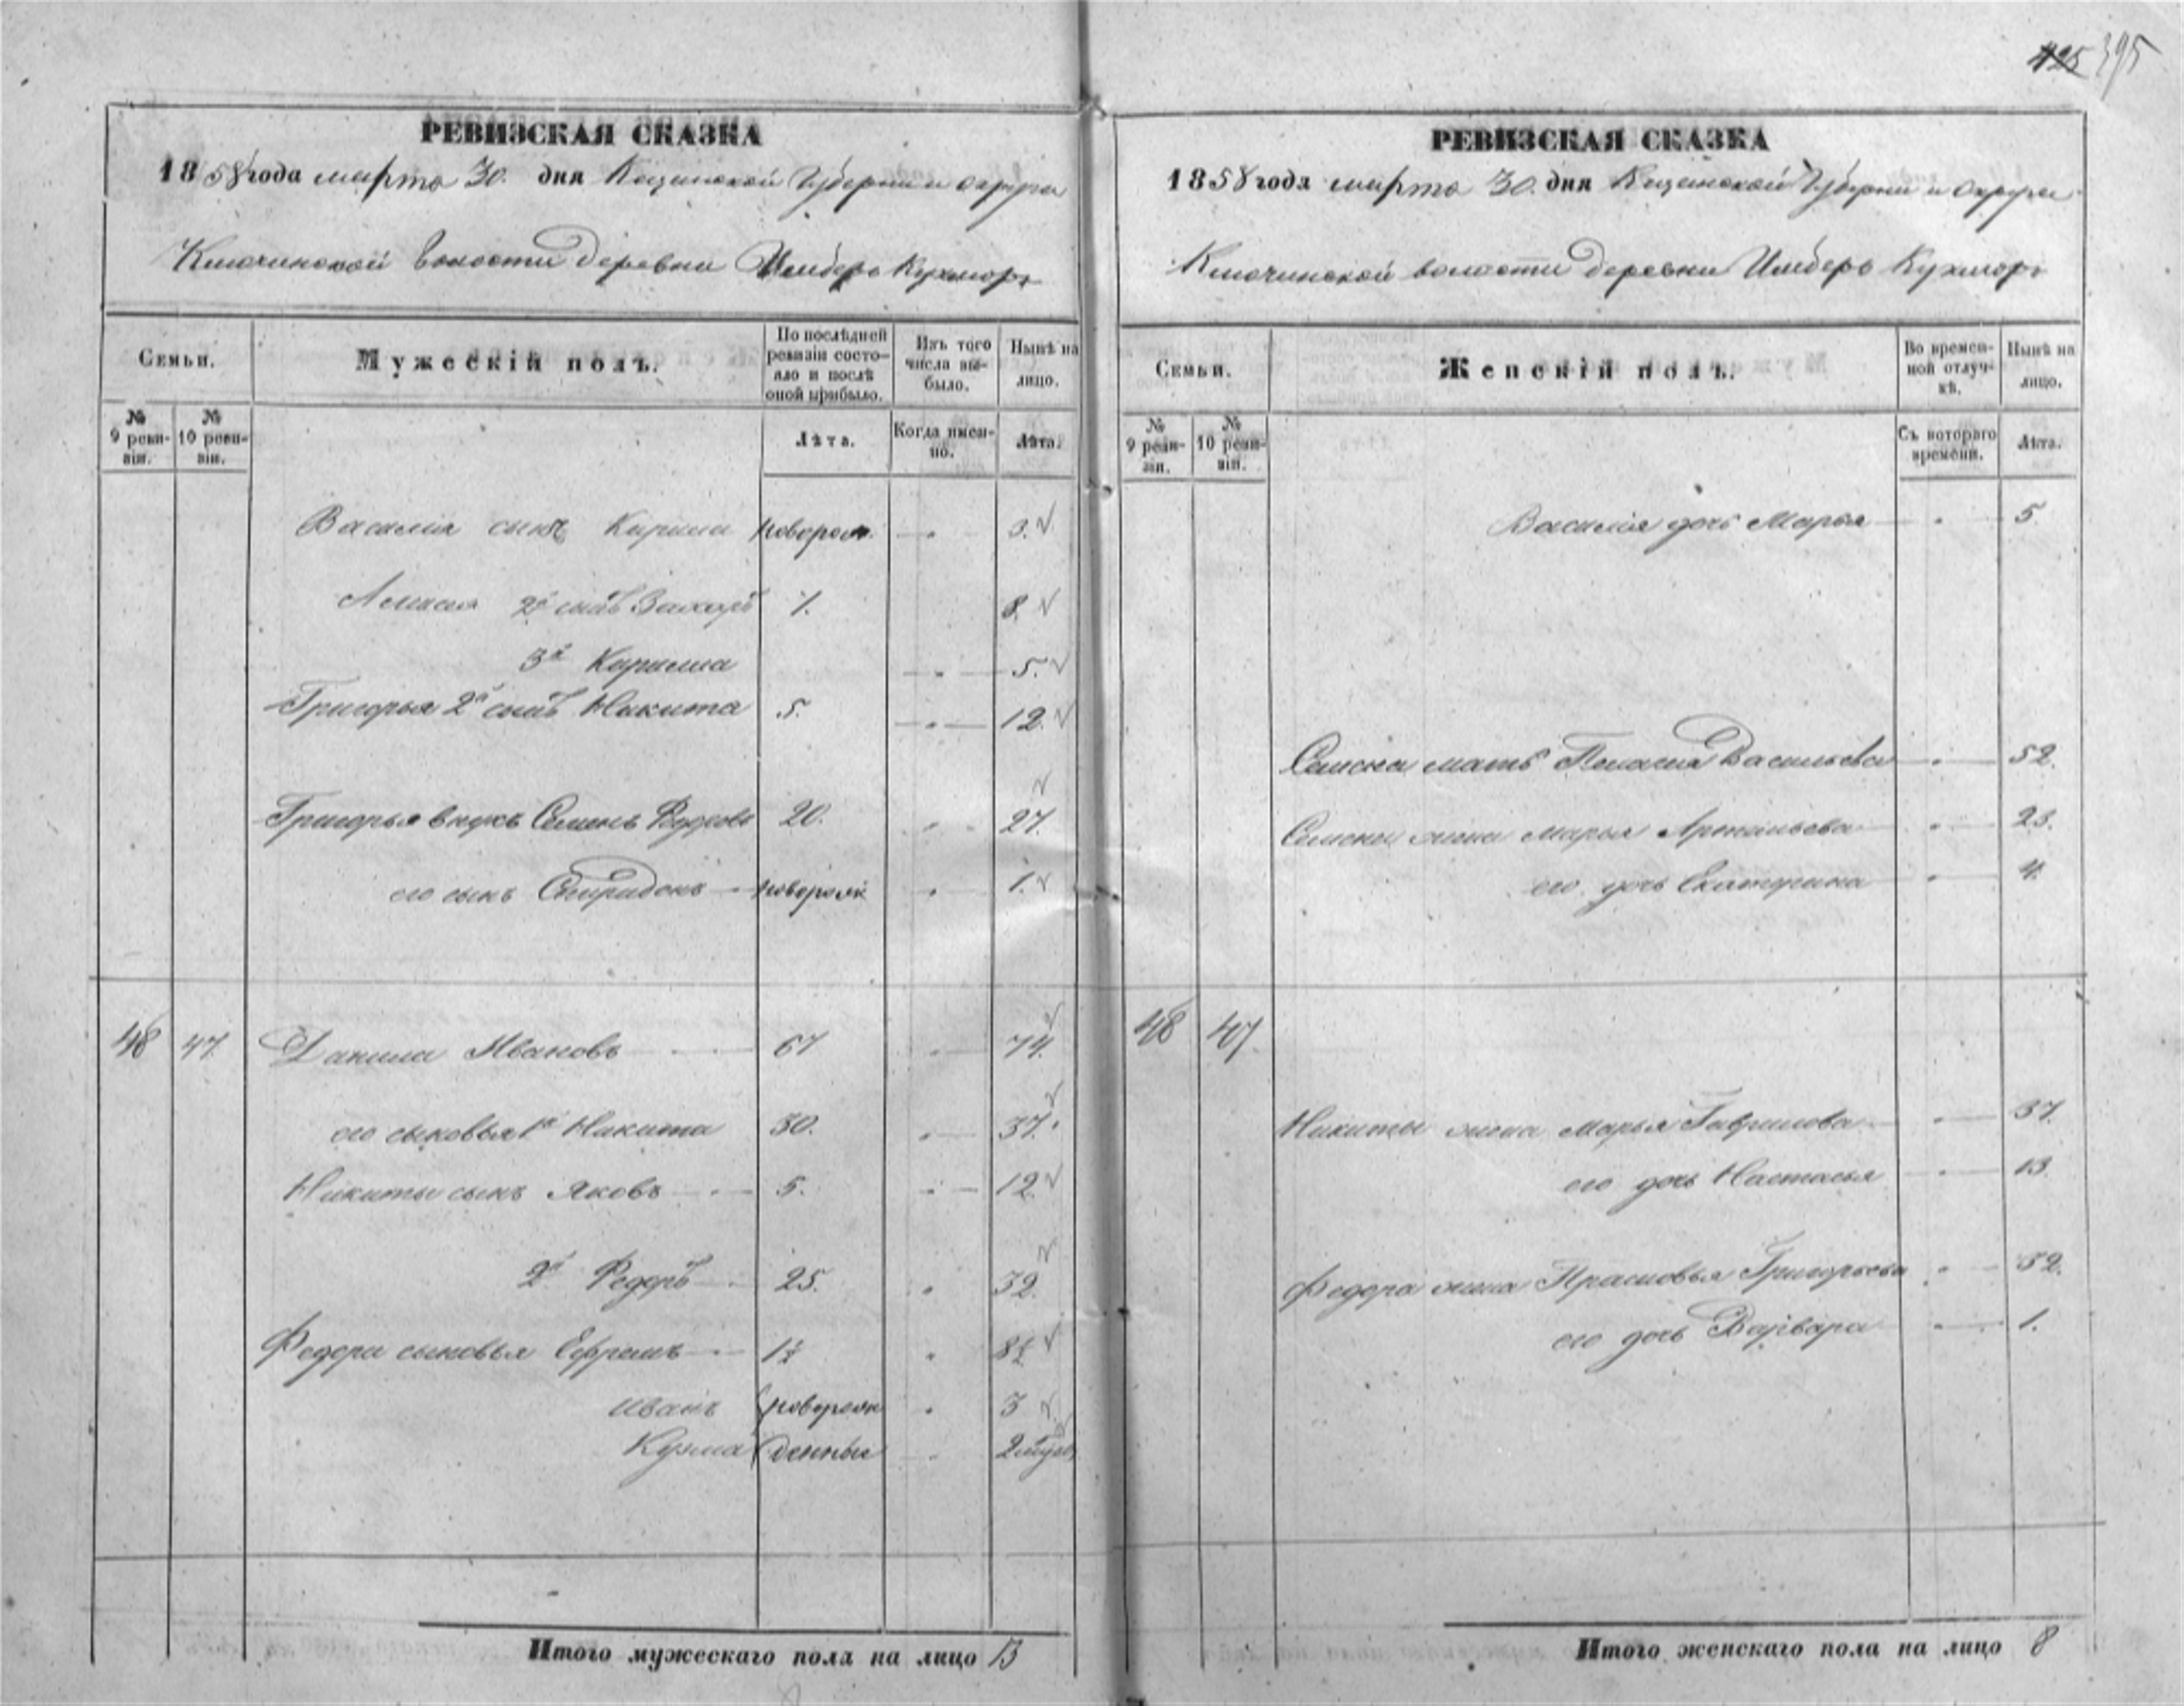 425 395
РЕВИЗСКАЯ СКАЗКА
1858 года марта 30. дня Казанской Губернии и округи
Ключинской волости деревни Имберь Кухмарь
Семьи.
Мужескій полъ.
По послѣдней ревизіи состояло и послѣ оной прибыло.
Изъ того числа выбыло.
Нынѣ на лицо.
№ 9 ревизіи.
№ 10 ревизіи.
Лѣта.
Когда именно.
Лѣта.
Василія сынъ Кирила новорож. 3.
Алексея 2й сынъ Захаръ 1. 8.
3й Кирилла 5.
Григорья 2й сынъ Никита 5. 12.
Григорья внукъ Семенъ Федоровъ 20. 27.
его сынъ Спиридонъ новорож 1.
48 47. Данила Ивановъ 67 74.
его сыновья 1й Никита 30. 37.
Никиты сынъ Яковъ 5. 12.
2й Федоръ 25. 32.
Федора сыновья Ефремъ 1½ 8½
Иванъ новорож 3
Кузма денные 2
Итого мужескаго пола на лицо 13
РЕВИЗСКАЯ СКАЗКА
1858 года марта 30. дня Казанской Губернии и округи
Ключинской волости деревни Имберь Кухмарь
Семьи.
Женскій полъ.
Во временной отлучкѣ.
Нынѣ на лицо.
№ 9 ревизіи.
№ 10 ревизіи.
Съ котораго времени.
Лѣта.
Василія дочь Марья 5.
Семена мать Пелагия Васильева 52.
Семена жена Марья 23.
его дочь Екатерина 4.
48 47
Никиты жена Марья Гаврилова 37.
его дочь Настасья 13.
Федора жена Прасковья Григорьева 32.
его дочь Варвара 1.
Итого женскаго пола на лицо 8